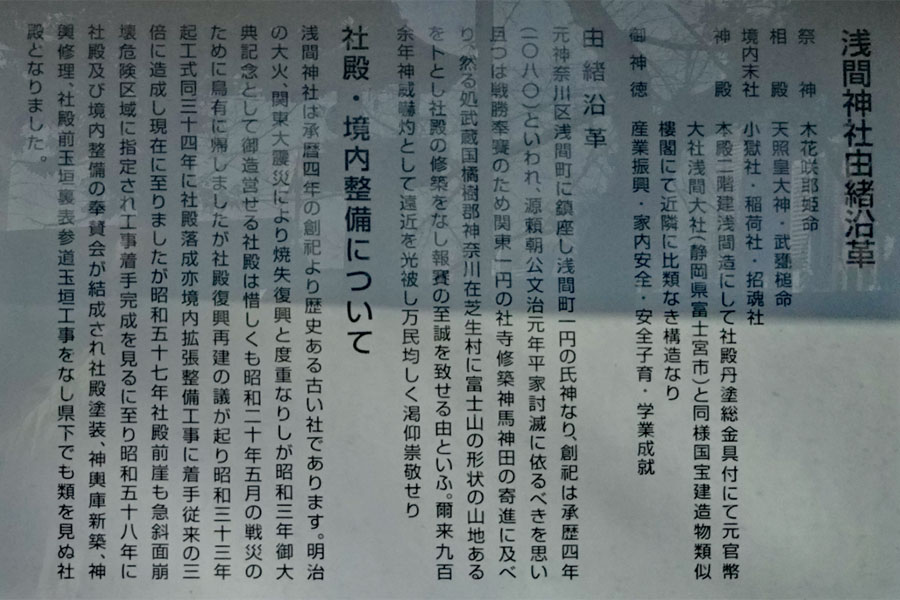 浅間神社由緒沿革
祭神 木花咲耶姫命
相殿 天照皇大神・武甕槌命
境内末社 小獄社・稲荷社・招魂社
神殿 本殿二階建浅間造にして社殿丹塗総金具付にて元官幣
大社浅間大社(静岡県富士宮市)と同様国宝建造物類似
楼閣にて近隣に比類なき構造なり
御神徳 産業振興・家内安全・安全子育・学業成就
由緒沿革
元神奈川区浅間町に鎮座し浅間町一円の氏神なり、創祀は承歴四年
(一〇八〇)といわれ、源頼朝公文治元年平家討滅に依るべきを思い
且つは戦勝奉賽のため関東一円の社寺修築神馬神田の寄進に及べ
り、然る処武蔵国橘樹郡神奈川在芝生村に富士山の形状の山地ある
をトとし社殿の修築をなし報賽の至誠を致せる由といふ。爾来九百
余年神威嚇灼として遠近を光被し万民均しく渇仰崇敬せり
社殿・境内整備について
浅間神社は承暦四年の創祀より歴史ある古い社であります。明治
の大火、関東大震災により焼失復興と度重なりしが昭和三年御大
典記念として御造営せる社殿は惜しくも昭和二十年五月の戦災の
ために烏有に帰しましたが社殿復興再建の議が起り昭和三十三年
起工式同三十四年に社殿落成亦境内拡張整備工事に着手従来の三
倍に造成し現在に至りましたが昭和五十七年社殿前崖も急斜面崩
壊危険区域に指定され工事着手完成を見るに至り昭和五十八年に
社殿及び境内整備の奉賛会が結成され社殿塗装、神輿庫新築、神
輿修理、社殿前玉垣裏表参道玉垣工事をなし県下でも類を見ぬ社
殿となりました。